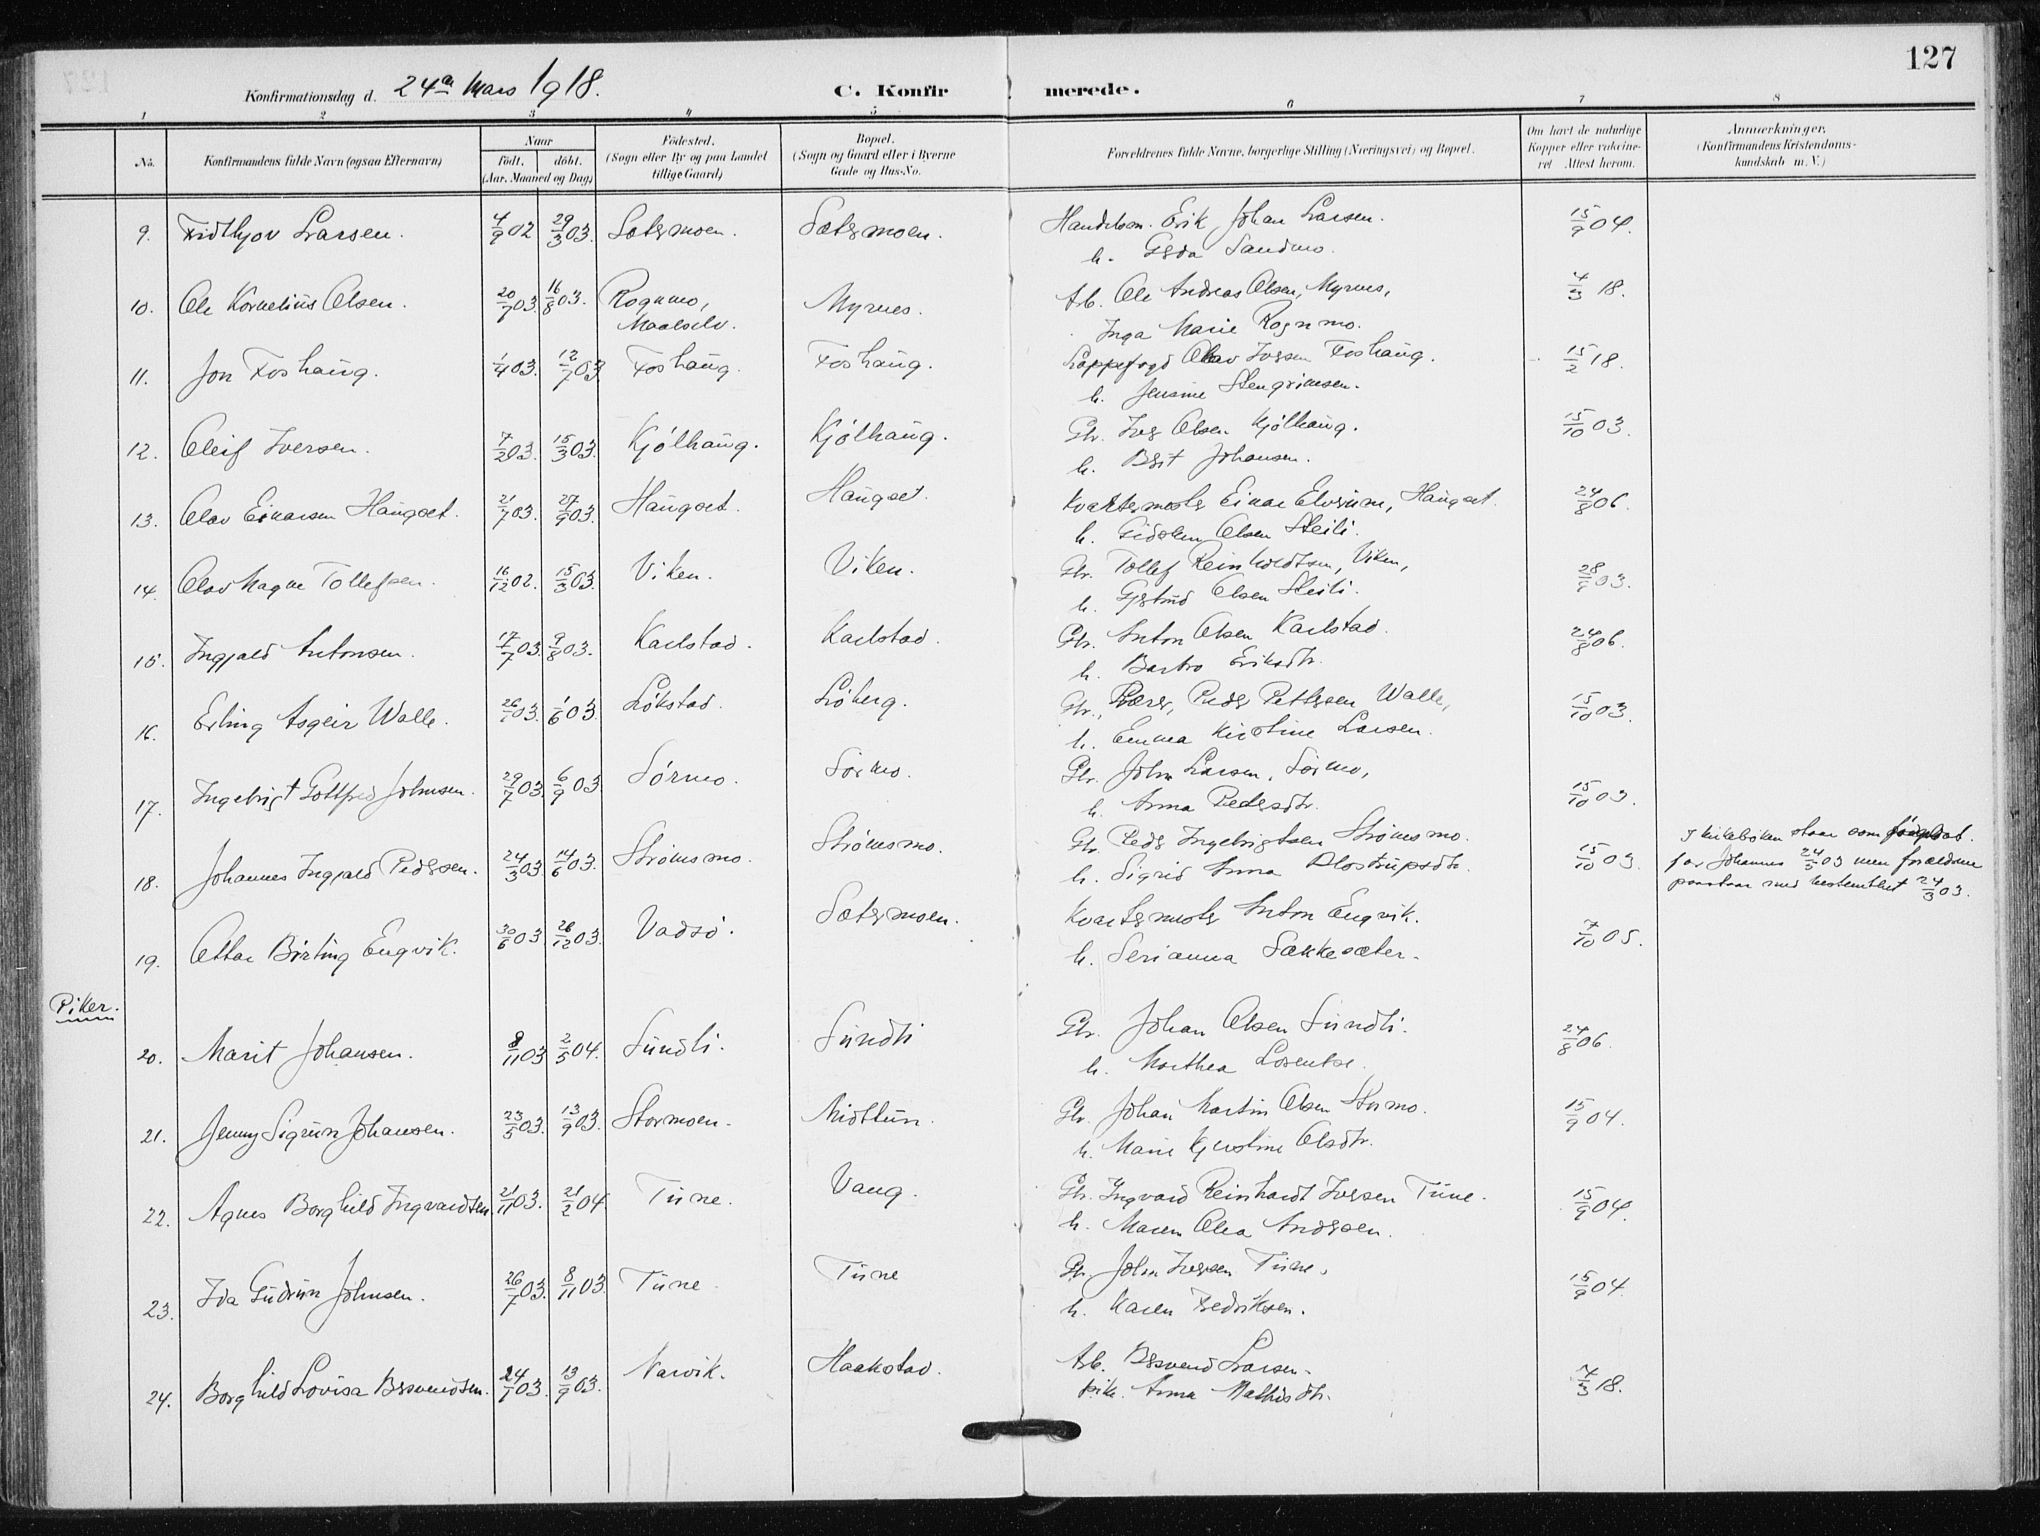 127
Konfirmationsdag d. 24de Mars 1918.
C. Konfirmerede.
1 2 3 4 5 6 7 8
No. Konfirmandens fulde Navn (ogsaa Efternavn) Naar født, døbt. (Aar, Maaned og Dag) Fødested. (Sogn eller By og paa Landet tillige Gaard) Bopæl. (Sogn og Gaard eller i Byerne Gade og Hus-No. Forældrenes fulde Navne, borgerlige Stilling (Næringsvei) og Bopæl. Om havt de naturlige Kopper eller vakcineret. Attest herom. Anmærkninger. (Konfirmandens Kristendomskundskab m. V.)
9. Fridthjov Larsen. 4/9 02 29/3 03. Sætermoen. Sætermoen. Handelsm. Erik Johan Larsen. 15/9 04.
h. Gerda Sandmo.
10. Ole Kornelius Olsen. 20/7 03. 16/8 03. Rognmo, Myrnes. Arb. Ole Andreas Olsen, Myrnes, 4/3 18.
Maalselv. Inga Marie Rognmo.
11. Jon Foshaug. 1/4 03. 12/7 03 Foshaug. Foshaug. Lappefogd Olav Iversen Foshaug. 15/2 18.
h. Jensine Stengrimsen.
12. Oleif Iversen. 7/2 03. 15/3 03. Kjølhaug. Kjølhaug. Gbr. Iver Olsen Kjølhaug. 15/10 03.
h. Berit Johansen.
13. Olav Einarsen Haugset. 21/7 03. 27/9 03. Haugset. Haugset. Kvartermester Einar Elvrum, Haugset. 24/8 06.
h. Gidsken Olsen Steili.
14. Olav Magne Tollefsen. 16/12 02. 15/3 03. Viken. Viken. Gbr. Tollef Reinholdtsen, Viken, 28/9 03.
h. Gjertrud Olsen Steili.
15. Ingjald Antonsen. 17/7 03. 9/8 03. Karlstad. Karlstad. Gbr. Anton Olsen Karlstad. 24/8 06.
h. Barbro Eriksdtr.
16. Erling Asgeir Walle. 03. 1/6 03 Løkstad. Løberg. Gbr., Peder Pettersen Walle, 15/10 03.
h. Emma Kirstine Larsen.
17. Ingebrigt Gottfred Johnsen. 29/7 03. 6/9 03 Sørmo. Sørmo. Gbr. John Larsen, Sørmo, 15/10 03.
h. Anna Pedersdtr.
18. Johannes Ingjald Pedersen. 24/3 03 14/6 03. Strømsmo. Strømsmo. Gbr. Peder Ingebrigtsen Strømsmo. 15/10 03. I kirkeboken staar som
h. Sigrid Anna for Johannes 24/5 03 men forældrene
paastaar med bestemthet 24/3 03.
19. Ottar Birting Engvik. 30/6 03 26/12 03. Vadsø. Sætermoen. Kvartermester Anton Engvik. 7/10 05.
h. Serianna Sækkesæter.
Piker.
20. Marit Johansen. 8/11 03 2/5 04. Sundli. Sundli Gbr. Johan Olsen Sundli. 24/8 06.
h. Marthea Lorentse.
21. Jenny Sigrun Johansen. 23/5 03. 13/9 03. Stormoen. Midttun. Gbr. Johan Martin Olsen Stormo. 15/9 04.
h. Marie Kjerstine Olsdtr.
22. Agnes Borghild Ingvardtsen 21/11 03. 21/2 04. Tune. Vang. Gbr. Ingvard Reinhardt Iversen Tune. 15/9 04.
h. Maren Olea Andersen.
23. Ida Gudrun Johnsen. 26/7 03. 8/11 03. Tune. Tune Gbr. John Iversen Tune, 15/9 04.
h. Karen Fredriksen.
24. Borghild Lovisa Bersvendsen. 24/7 03. 13/9 03. Narvik. Haakstad. Arb. Bersvend Larsen. 4/3 18.
pike. Anna Mathisdtr.